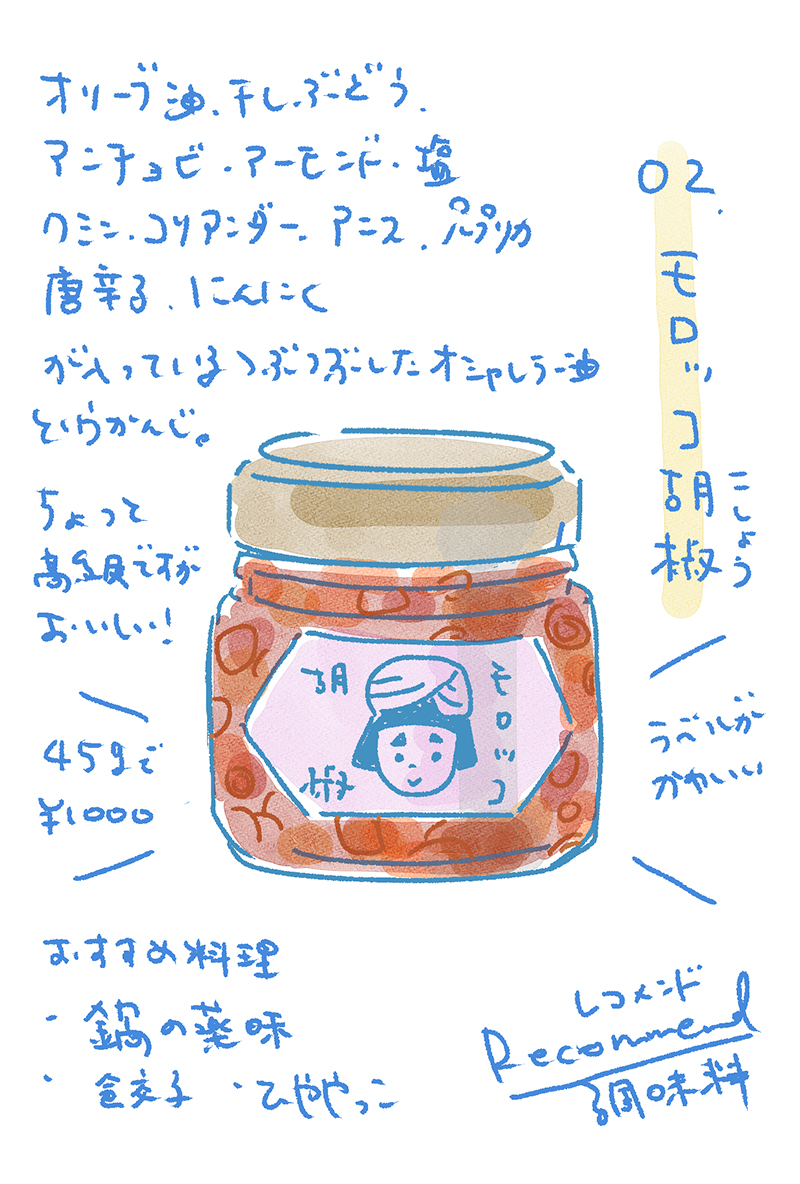 02.
モロッコ胡椒
こしょう
オリーブ油、干しぶどう、
アンチョビ・アーモンド・塩
クミン、コリアンダー、アニス、パプリカ
唐辛子、にんにく
が入っているつぶつぶしたオシャレラー油
というかんじ。
ちょっと
高級ですが
おいしい！
45gで
¥1000
モロッコ
胡椒
ラベルが
かわいい
おすすめ料理
・鍋の薬味
・餃子 ・ひややっこ
レコメンド
Recommend
調味料